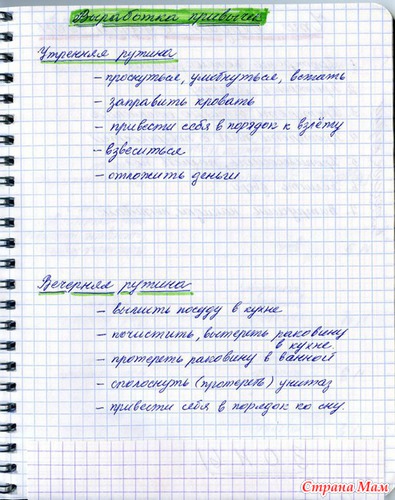 Выработка привычек
Утренняя рутина
- проснуться, улыбнуться, встать
- заправить кровать
- привести себя в порядок к взлёту
- взвеситься
- отложить деньги
Вечерняя рутина
- вымыть посуду в кухне
- почистить, вытереть раковину
в кухне
- протереть раковину в ванной
- сполоснуть (протереть) унитаз
- привести себя в порядок ко сну.
Страна Мам